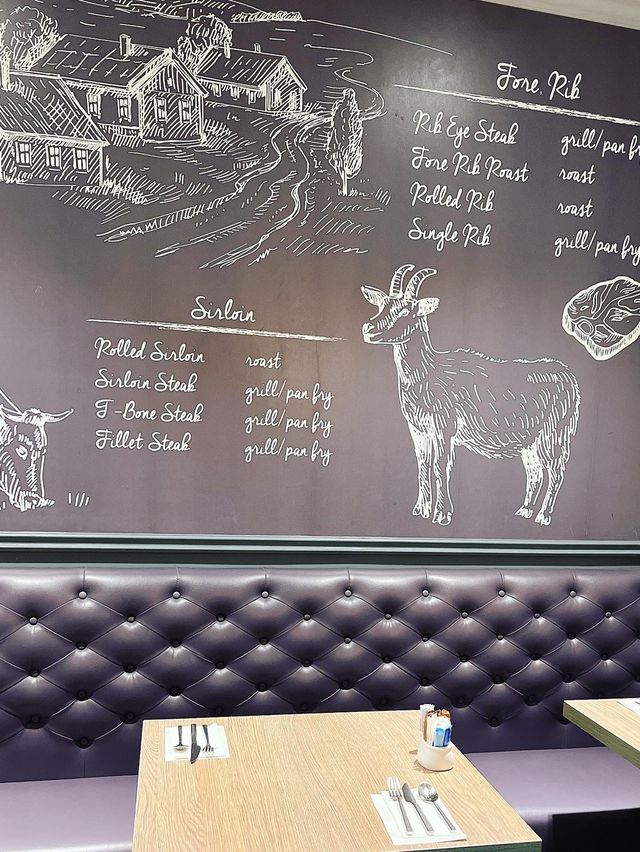 Fore Rib
Rib Eye Steak grill/pan fr
Fore Rib Roast roast
Rolled Rib roast
Single Rib grill/pan fry
Sirloin
Rolled Sirloin roast
Sirloin Steak grill/pan fry
T-Bone Steak grill/pan fry
Fillet Steak grill/pan fry